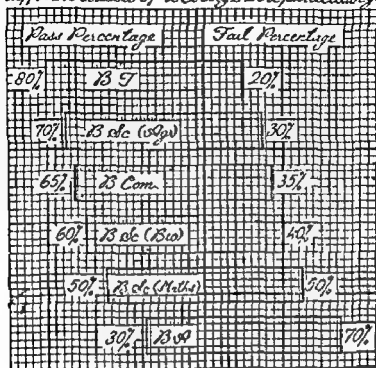 Pass Percentage Fail Percentage
80% B T 20%
70% B Sc (Agr) 30%
65% B Com 35%
60% B Sc (Bio) 40%
50% B Sc (Maths) 50%
30% B A 70%